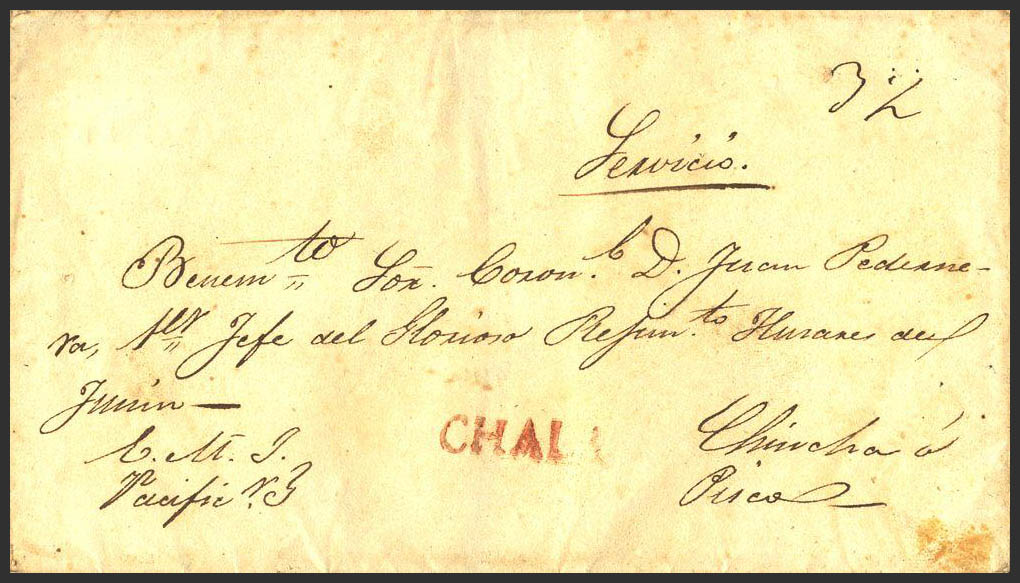 3½
Servicio.
Benem.to Sor. Coron.l D. Juan Pederne-
ra, 1er Jefe del Glorioso Rejim.to Husares del
Junin —
E. M. J.
Pacific
CHAL
Chincha ó
Pisco